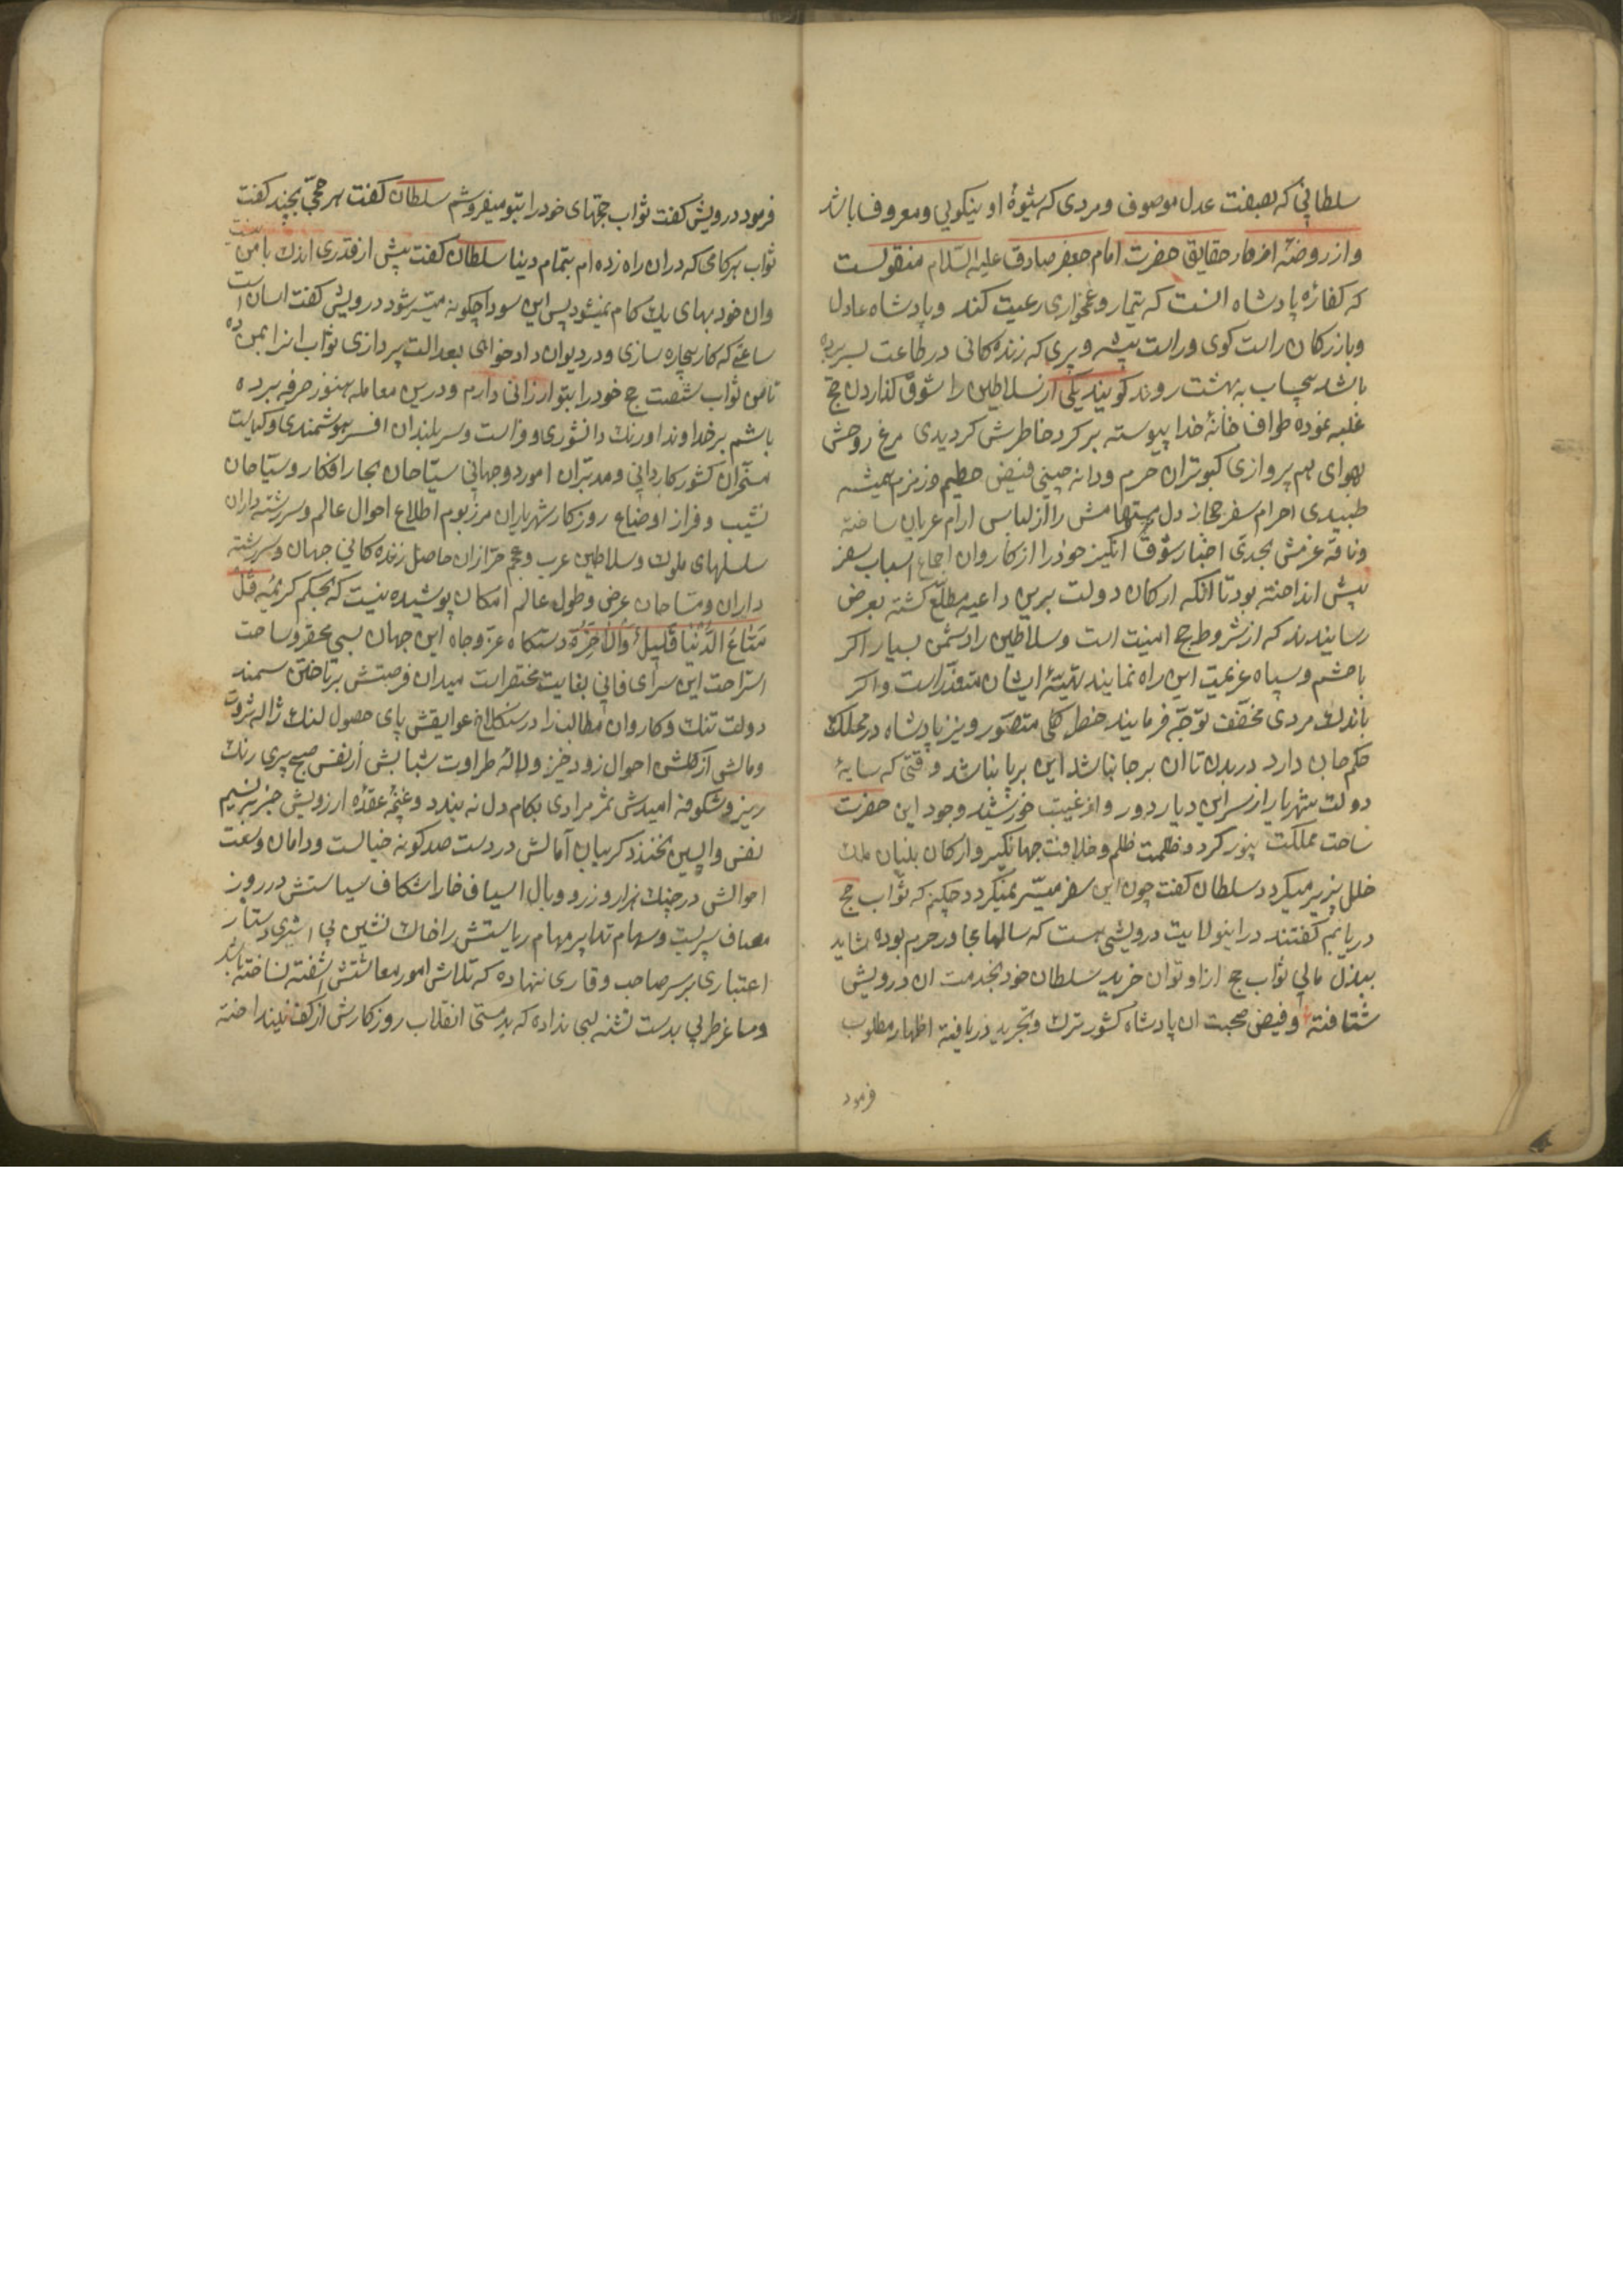 سلطانی که بصفت عدل موصوف و مردی که شیوهٔ او نیکویی و معروف باشد
و از روضهٔ ازهار حقایق حضرت امام جعفر صادق علیه السّلام منقولست
که کفارهٔ پادشاه انست که تیمار و غمخواری رعیت کند و پادشاه عادل
و بازرکان راست کوی و راست پیشه و پیری که زنده کانی در طاعت بسر برده
باشد بیحساب به بهشت روند کویند یکی از سلاطین را شوق کذاردن حج
غلبه نموده طواف خانهٔ خدا پیوسته بر کرد خاطرش کردیدی مرغ روحش
بهوای هم پروازی کبوتران حرم و دانه چینی فیض حطیم و زمزم همیشه
طبیدی احرام سفر حجاز دل مستهامش را از لباس ارام عریان ساخته
و ناقهٔ عزمش بحدی اخبار شوق انکیز خود را از کاروان اجماع اسباب سفر
پیش انداخته بود تا انکه ارکان دولت برین داعیه مطلّع کشته بعرض
رسانیدند که از شروط حج امنیت است و سلاطین را دشمن بسیار اکر
با حشم و سپاه عزیمت این راه نمایند تهیّهٔ ایشان متعذّر است و اکر
باندك مردی مخفّف توجّه فرمایند خطر کلی متصوّر و نیز پادشاه در مملکت
حکم جان دارد در بدن تا ان بر جا نباشد این بر پا نباشد وقتی که سایهٔ
دولت شهریار از سر این دیار دور و از غیبت خورشید وجود این حضرت
ساحت مملکت بینور کردد ظلمت ظلم و خلافت جهانکیر و ارکان بنیان ملك
خلل پزیر میکردد سلطان کفت چون این سفر میسّر نمیکردد چکنم که ثواب حج
دریابم کفتند در اینولایت درویشی هست که سالها مجاور حرم بوده شاید
ببذل مالی ثواب حج از او توان خرید سلطان خود بخدمت ان درویش
شتافته و فیض صحبت ان پادشاه کشور ترك و تجرید دریافته اظهار مطلوب
فرمود
فرمود درویش کفت ثواب حجهای خود را بتو میفروشم سلطان کفت هر حجّی بچند کفت
ثواب هر کامی که در ان راه زده ام بتمام دینا سلطان کفت پیش از قدری اندك با من نیست
وان خود بهای یك کام نمیشود پس این سودا چکونه میّسر شود درویش کفت اسان است
ساعتی که کار بیچاره سازی و در دیوان دادخواهی بعدالت پردازی ثواب انرا بمن ده
تا من ثواب شصت حج خود را بتو ارزانی دارم و درین معامله هنوز صرفه برده
باشم بر خداوند اورنك دانشوری و فراست و سربلندان افسر هوشمندی و کیاست
مسخّران کشور کاردانی و مدبّران امور دو جهانی سبّاحان بحار افکار و سیّاحان
نشیب و فراز اوضاع روزکار شهریاران مرزبوم اطلاع احوال عالم و سررشته داران
سلسلهای ملوك و سلاطین عرب و عجم خرّازان حاصل زنده کانی جهان و سررشته
داران و مسّاحان عرض و طول عالم امکان پوشیده نیست که بحکم کریمهٔ قُلْ
مَتٰاعُ الدُّنْیٰا قَلِیلٌ وَالْآخِرَةُ دستکاه عزّ و جاه این جهان بسی محقر و ساحت
استراحت این سرای فانی بغایت مختصر است میدان فرصتش بر تاختن سمند
دولت تنك و کاروان مطالب را در سنکلاخ عوایقش پای حصول لنك ژالهٔ ثروت
و مالش از کلشن احوال زود خیز و لالهٔ طراوت شبابش از نفس صبح پیری رنك
ریز و شکوفهٔ امیدش ثمر مرادی بکام دل نه بندد و غنچهٔ عقدهٔ ارزویش جز بر نسیم
نفس واپسین نخندد کریبان آمالش در دست صد کونه خیالست و دامان وسعت
احوالش در چنك هزار و زر و وبال اسیاف خارا شکاف سیاستش در روز
مصاف سربست و سهام تدابیر مهام ریاستش را خاك نشین پی اثری دستار
اعتباری بر سر صاحب وقاری ننهاده که تلاش امور معاشش اشفته نساخته باشد
و ساغر طربی بدست تشنه لبی نداده که بدمستی انقلاب روزکارش از کف نینداخته